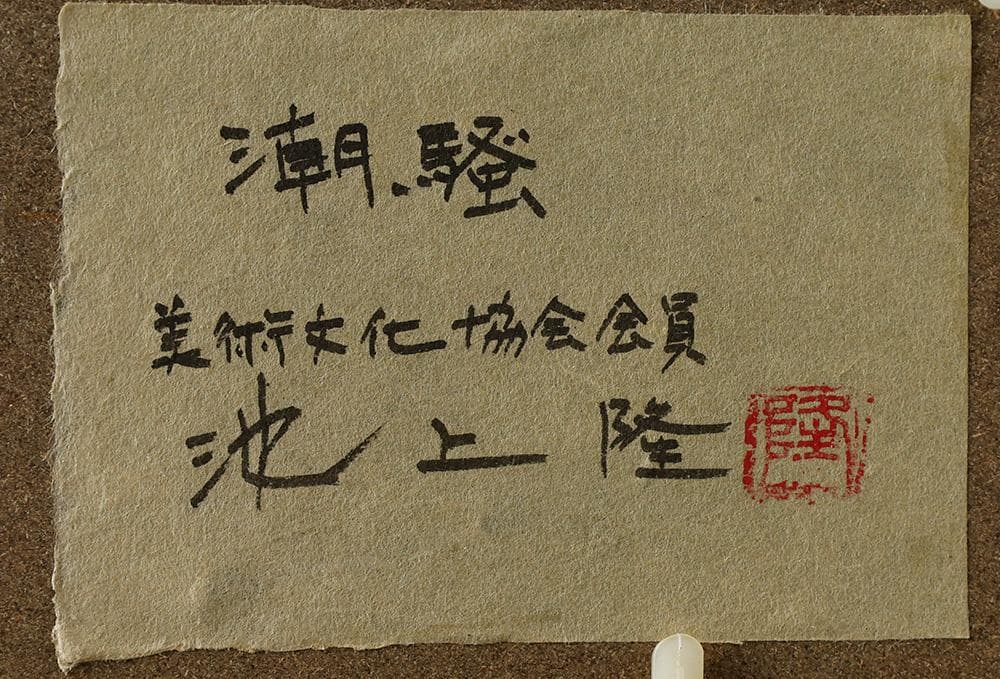 潮騒
美術文化協会会員
池上隆 隆